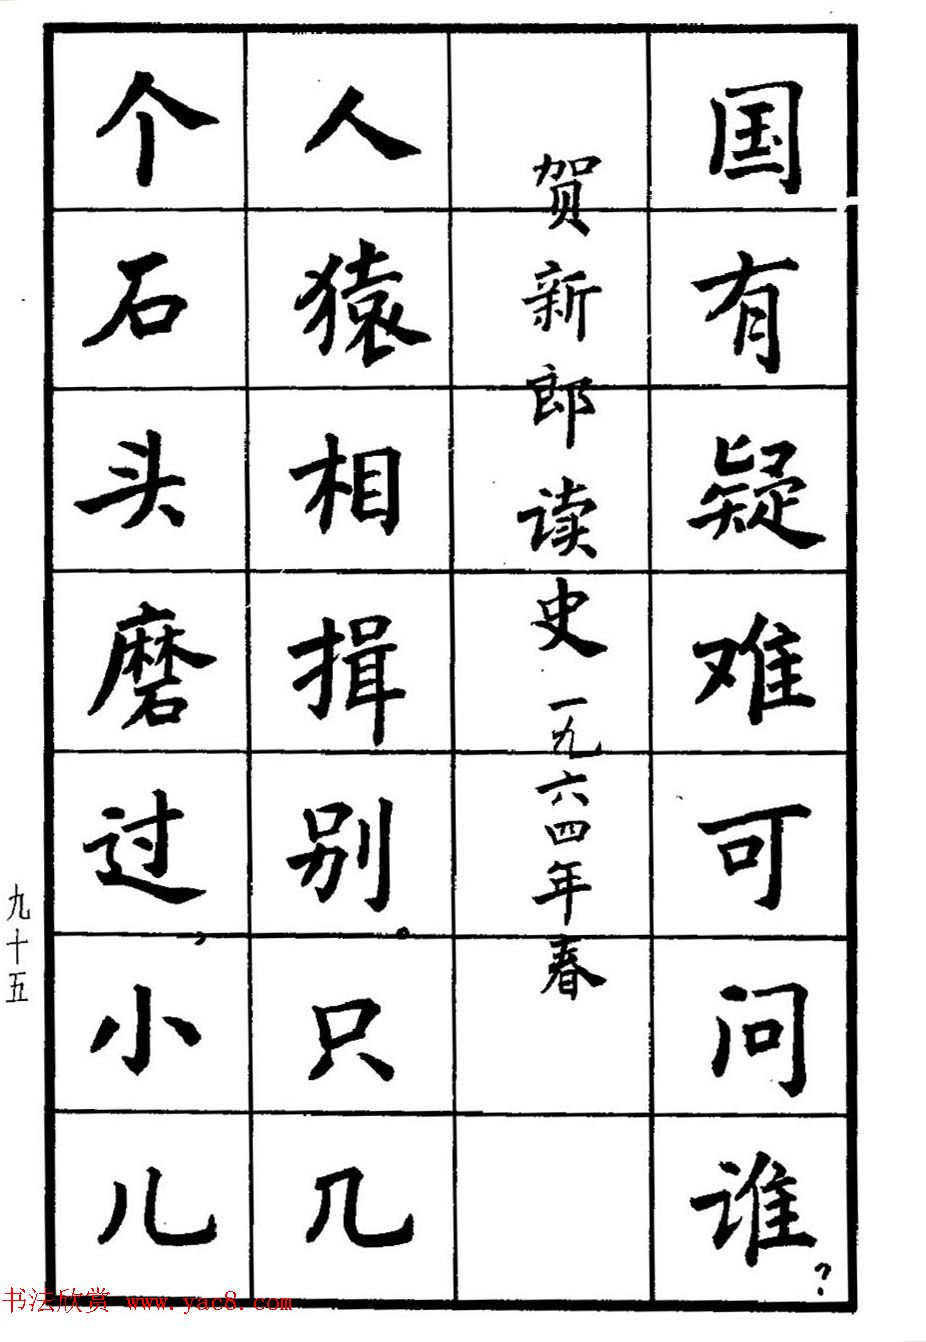 国有疑难可问谁?
贺新郎读史一九六四年春
人猿相揖别。只几
个石头磨过,小儿
九十五
书法欣赏 www.yac8.com